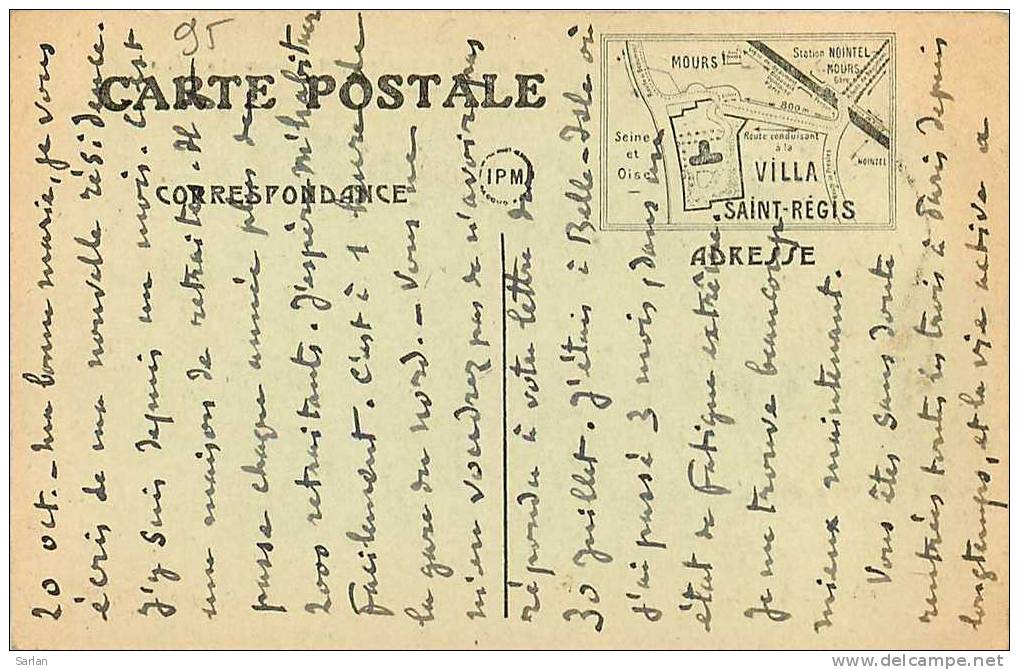 CARTE POSTALE
CORRESPONDANCE
IPM
ADRESSE
MOURS
Station NOINTEL
MOURS
800 m
Seine
et
Oise
Route conduisant
à la
VILLA
SAINT-RÉGIS
NOINTEL
95
20 oct. - Ma bonne marie, je vous
écris de ma nouvelle résidence.
J'y suis depuis un mois. C'est
une maison de retraite. Il
passe chaque année plus de
2000 retraitants. J'espère m'habituer
facilement. C'est à 1 heure de
la gare du Nord. - Vous ne
m'en voudrez pas de n'avoir pas
répondu à votre lettre du
30 Juillet. J'étais à Belle-Isle où
j'ai passé 3 mois, dans un
état de fatigue extrême.
Je me trouve beaucoup
mieux maintenant.
Vous êtes sans doute
rentrées toutes les trois à Paris depuis
longtemps, et la vie active a
Sarlan
delcampe.net